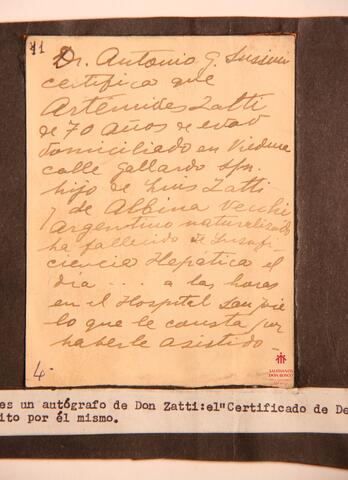 11
Dr. Antonio G. Sussini
certifica que
Artemides Zatti
de 70 años de edad
domiciliado en Viedma
calle Gallardo s/n.
hijo de Luis Zatti
y de Albina Vecchi
argentino naturalizado
ha fallecido de Insufi-
ciencia Hepatica el
día . . . a las horas
en el Hospital San José
lo que le consta por
haberle asistido
4.
SALESIANOS
DON BOSCO
es un autógrafo de Don Zatti:el"Certificado de De
ito por él mismo.